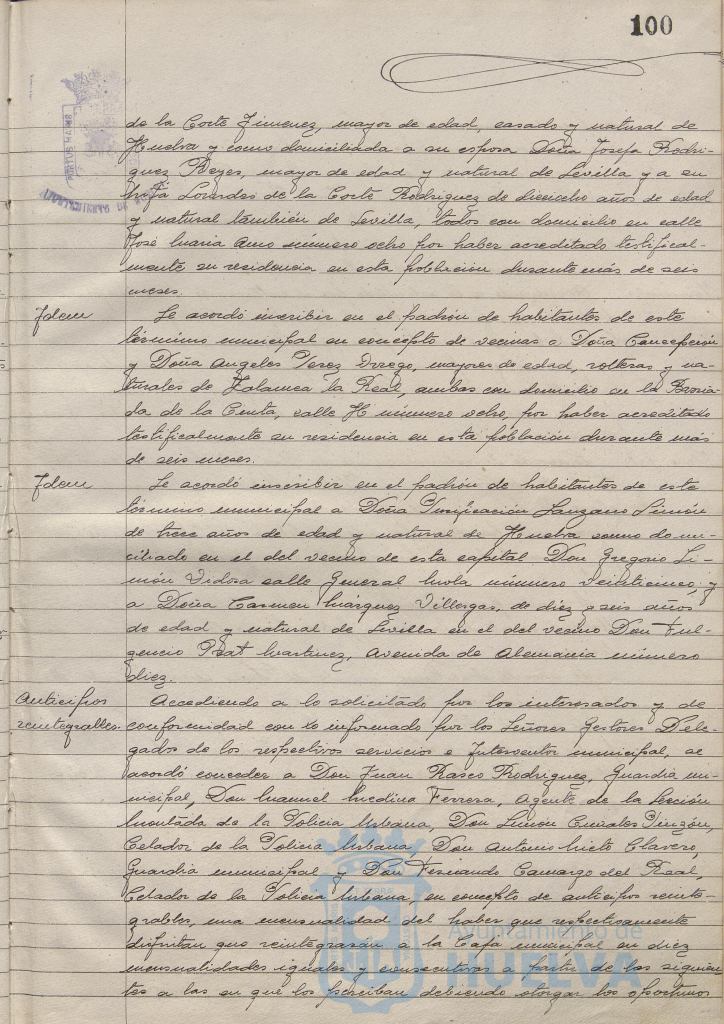 100
de la Corte Jimenez, mayor de edad, casado y natural de
Huelva y como domiciliada a su esposa Doña Josefa Rodri-
guez Reyes, mayor de edad y natural de Sevilla y a su
hija Lourdes de la Corte Rodriguez de dieciocho años de edad
y natural también de Sevilla, todos con domicilio en calle
José Maria Amo número ocho por haber acreditado testifical-
mente su residencia en esta población durante más de seis
meses.
Idem
Se acordó inscribir en el padrón de habitantes de este
término municipal en concepto de vecinas a Doña Concepción
y Doña Angeles Perez Orrego, mayores de edad, solteras y na-
turales de Zalamea la Real, ambas con domicilio en la Barria-
da de la Cinta, calle H número ocho, por haber acreditado
testificalmente su residencia en esta población durante más
de seis meses.
Idem
Se acordó inscribir en el padrón de habitantes de este
término municipal a Doña Purificación Lanzano Simón
de trece años de edad y natural de Huelva como domi-
ciliado en el del vecino de esta capital Don Gregorio Li-
món calle General Mola número veinticinco; y
a Doña Carmen Márquez Villergas, de diez y seis años
de edad y natural de Sevilla en el del vecino Don Ful-
gencio Prat Martinez, Avenida de Alemania número
diez.
Anticipos
reintegrables.
Accediendo a lo solicitado por los interesados y de
conformidad con lo informado por los Señores Gestores Dele-
gados de los respectivos servicios e Interventor municipal, se
acordó conceder a Don Juan Rasco Rodriguez, Guardia mu-
nicipal, Don Manuel Medina Ferrera, Agente de la Sección
Montada de la Policia Urbana, Don Simón Pinzón,
Celador de la Policia Urbana, Don Antonio Nieto Clavero,
Guardia municipal y Don Fernando Camargo del Real,
Celador de la Policia Urbana, en concepto de anticipos reinte-
grables, una mensualidad del haber que respectivamente
disfrutan que reintegrarán a la Caja municipal en diez
mensualidades iguales y consecutivas a partir de las siguien-
tes a las en que los perciban debiendo otorgar los oportunos
Ayuntamiento de
HUELVA